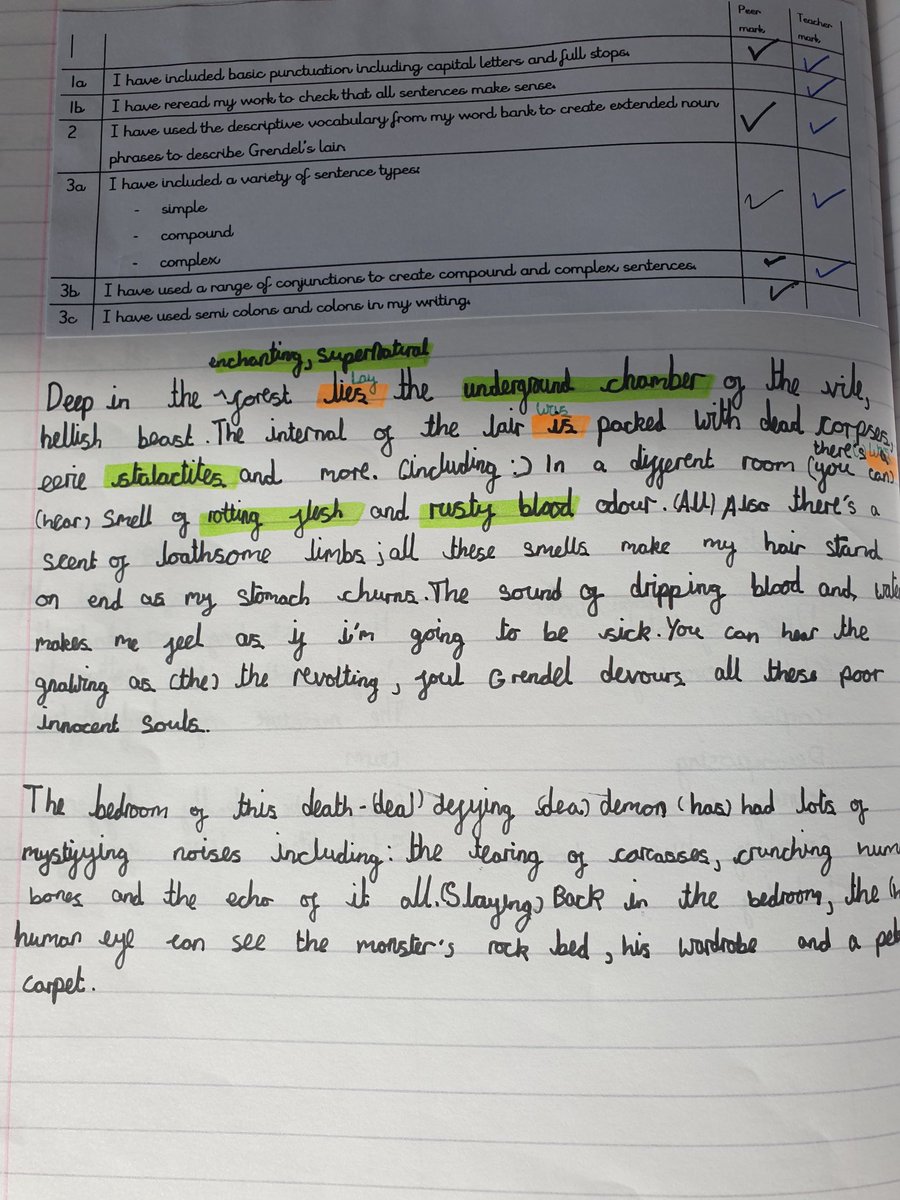 Peer mark
Teacher mark
1
1a I have included basic punctuation including capital letters and full stops.
1b I have reread my work to check that all sentences make sense.
2 I have used the descriptive vocabulary from my word bank to create extended noun
phrases to describe Grendel's lair
3a I have included a variety of sentence types:
- simple
- compound
- complex
3b I have used a range of conjunctions to create compound and complex sentences.
3c I have used semi colons and colons in my writing.
enchanting, supernatural
lay
Deep in the ^forest lies the underground chamber of the vile,
was
hellish beast. The internal of the lair is packed with dead corpses,
there's was
eerie stalactites and more. (including:) In a different room (you can)
(hear) smell of rotting flesh and rusty blood odour. (All) Also there's a
scent of loathsome limbs ; all these smells make my hair stand
on end as my stomach churns. The sound of dripping blood and
makes me feel as if i'm going to be sick. You can hear the
gnawing as (the) the revolting, foul Grendel devours all these poor
innocent souls.
The bedroom of this death-(deaf) defying (dea) demon (has) had lots of
mystifying noises including: the tearing of carcasses, crunching
bones and the echo of it all. (Slaying) Back in the bedroom, the
human eye can see the monster's rock bed, his wardrobe and a
carpet.